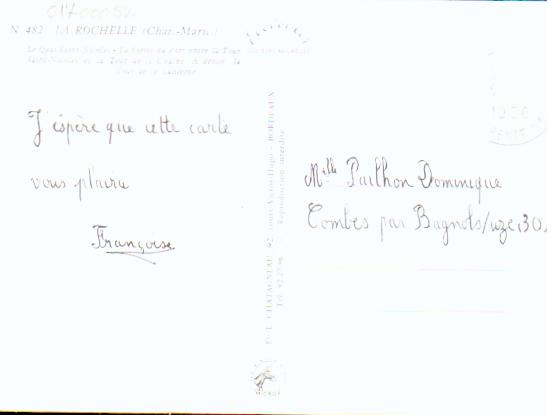 01700052
N 482 LA ROCHELLE (Char.-Marit.)
Le Quai Saint-Nicolas - La Sortie du port entre la Tour
Saint-Nicolas et la Tour de la Chaîne. A droite, la
Tour de la Lanterne
J'espère que cette carte
vous plaira
Françoise
Melle Pailhon Dominique
Combes par Bagnols/uze 30.
CHATAGNEAU 92, Cours Victor-Hugo - BORDEAUX
Reproduction interdite